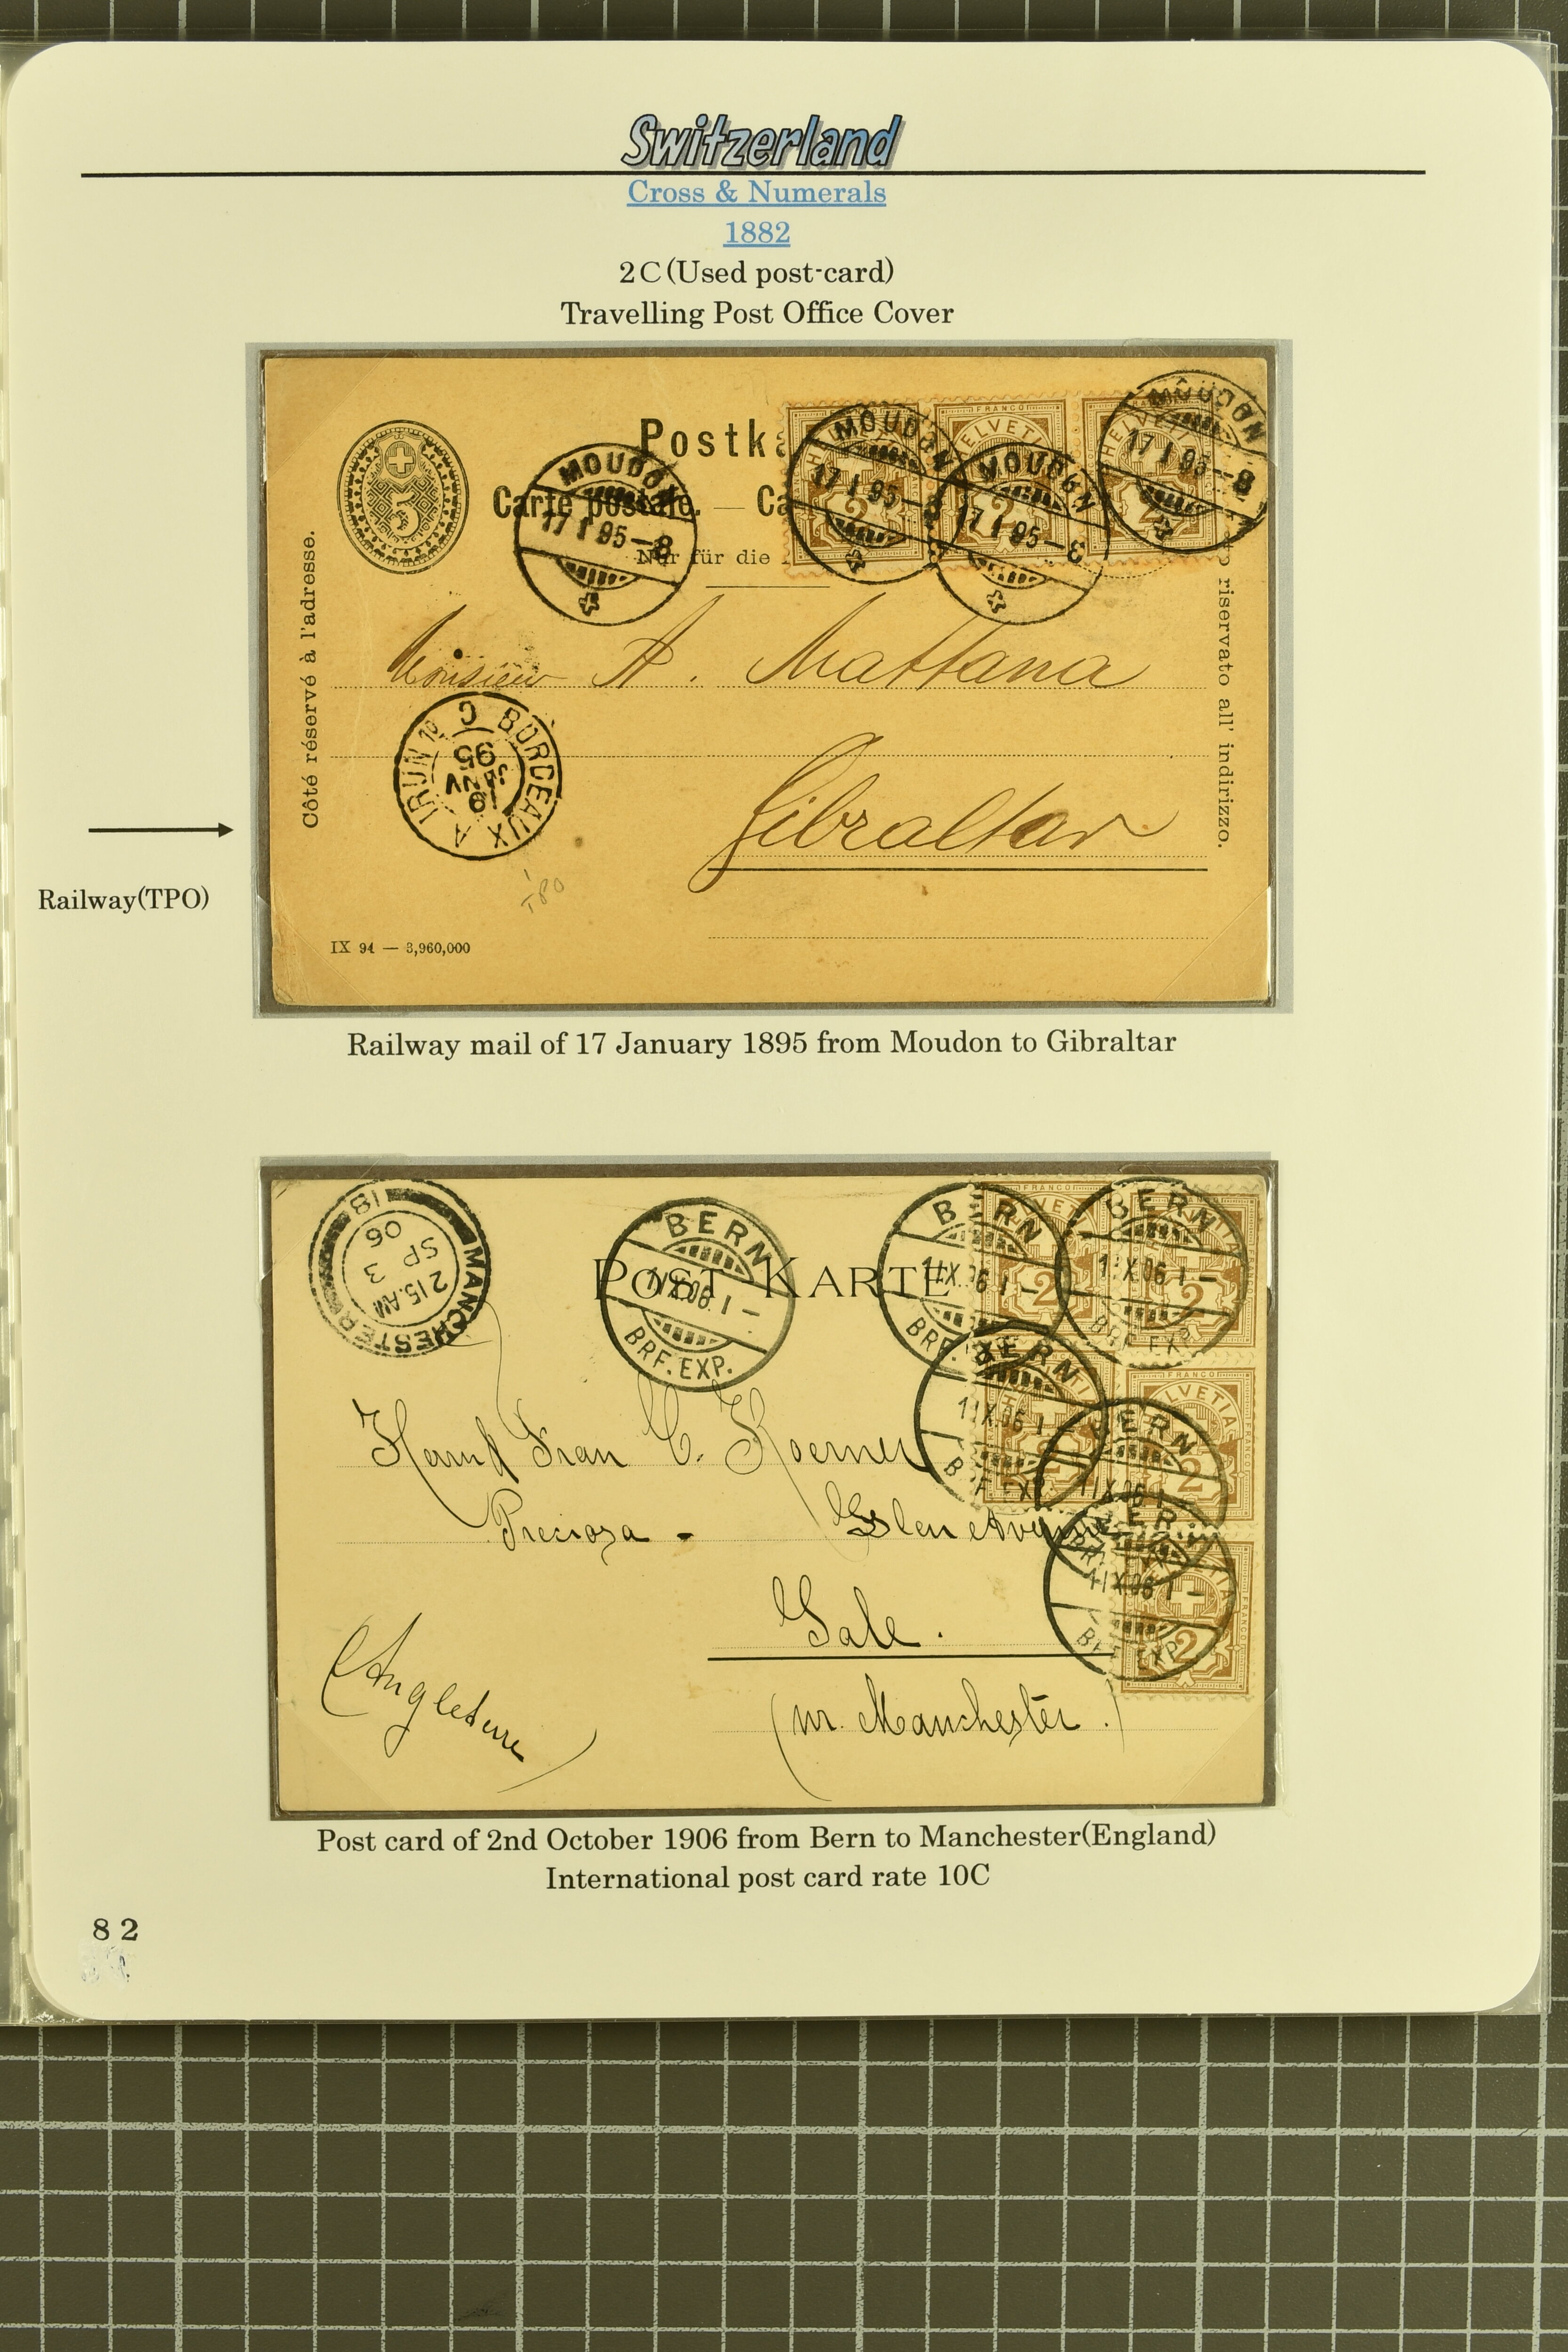 Switzerland
Cross & Numerals
1882
2C(Used post-card)
Travelling Post Office Cover
Postka
Carte postale. — Ca
Nur für die
5
MOUDON
17 I 95-8
FRANCO
HELVETIA
2
MOUDON
17 I 95-8
2
MOUDON
17 I 95-8
2
MOUDON
17 I 95-8
Côté réservé à l'adresse.
riservato all' indirizzo.
Monsieur A. Mattana
Gibraltar
BORDEAUX A IRUN 1º C
19
JANV
95
TPO
IX 94 — 3,960,000
Railway(TPO)
Railway mail of 17 January 1895 from Moudon to Gibraltar
MANCHESTER
2 15.AM
SP 3
06
18
POST KARTE
BERN
1 IX.06. 1 –
BRF. EXP.
BERN
BRF. EXP.
BERN
BRF. EXP.
BERN
BRF. EXP.
BERN
BERN
BRF. EXP.
FRANCO
HELVETIA
2
2
2
2
2
Frau C. Koerner
Preciosa - Glen Avenue
Sale.
(nr. Manchester.)
(Angleterre)
Post card of 2nd October 1906 from Bern to Manchester(England)
International post card rate 10C
82